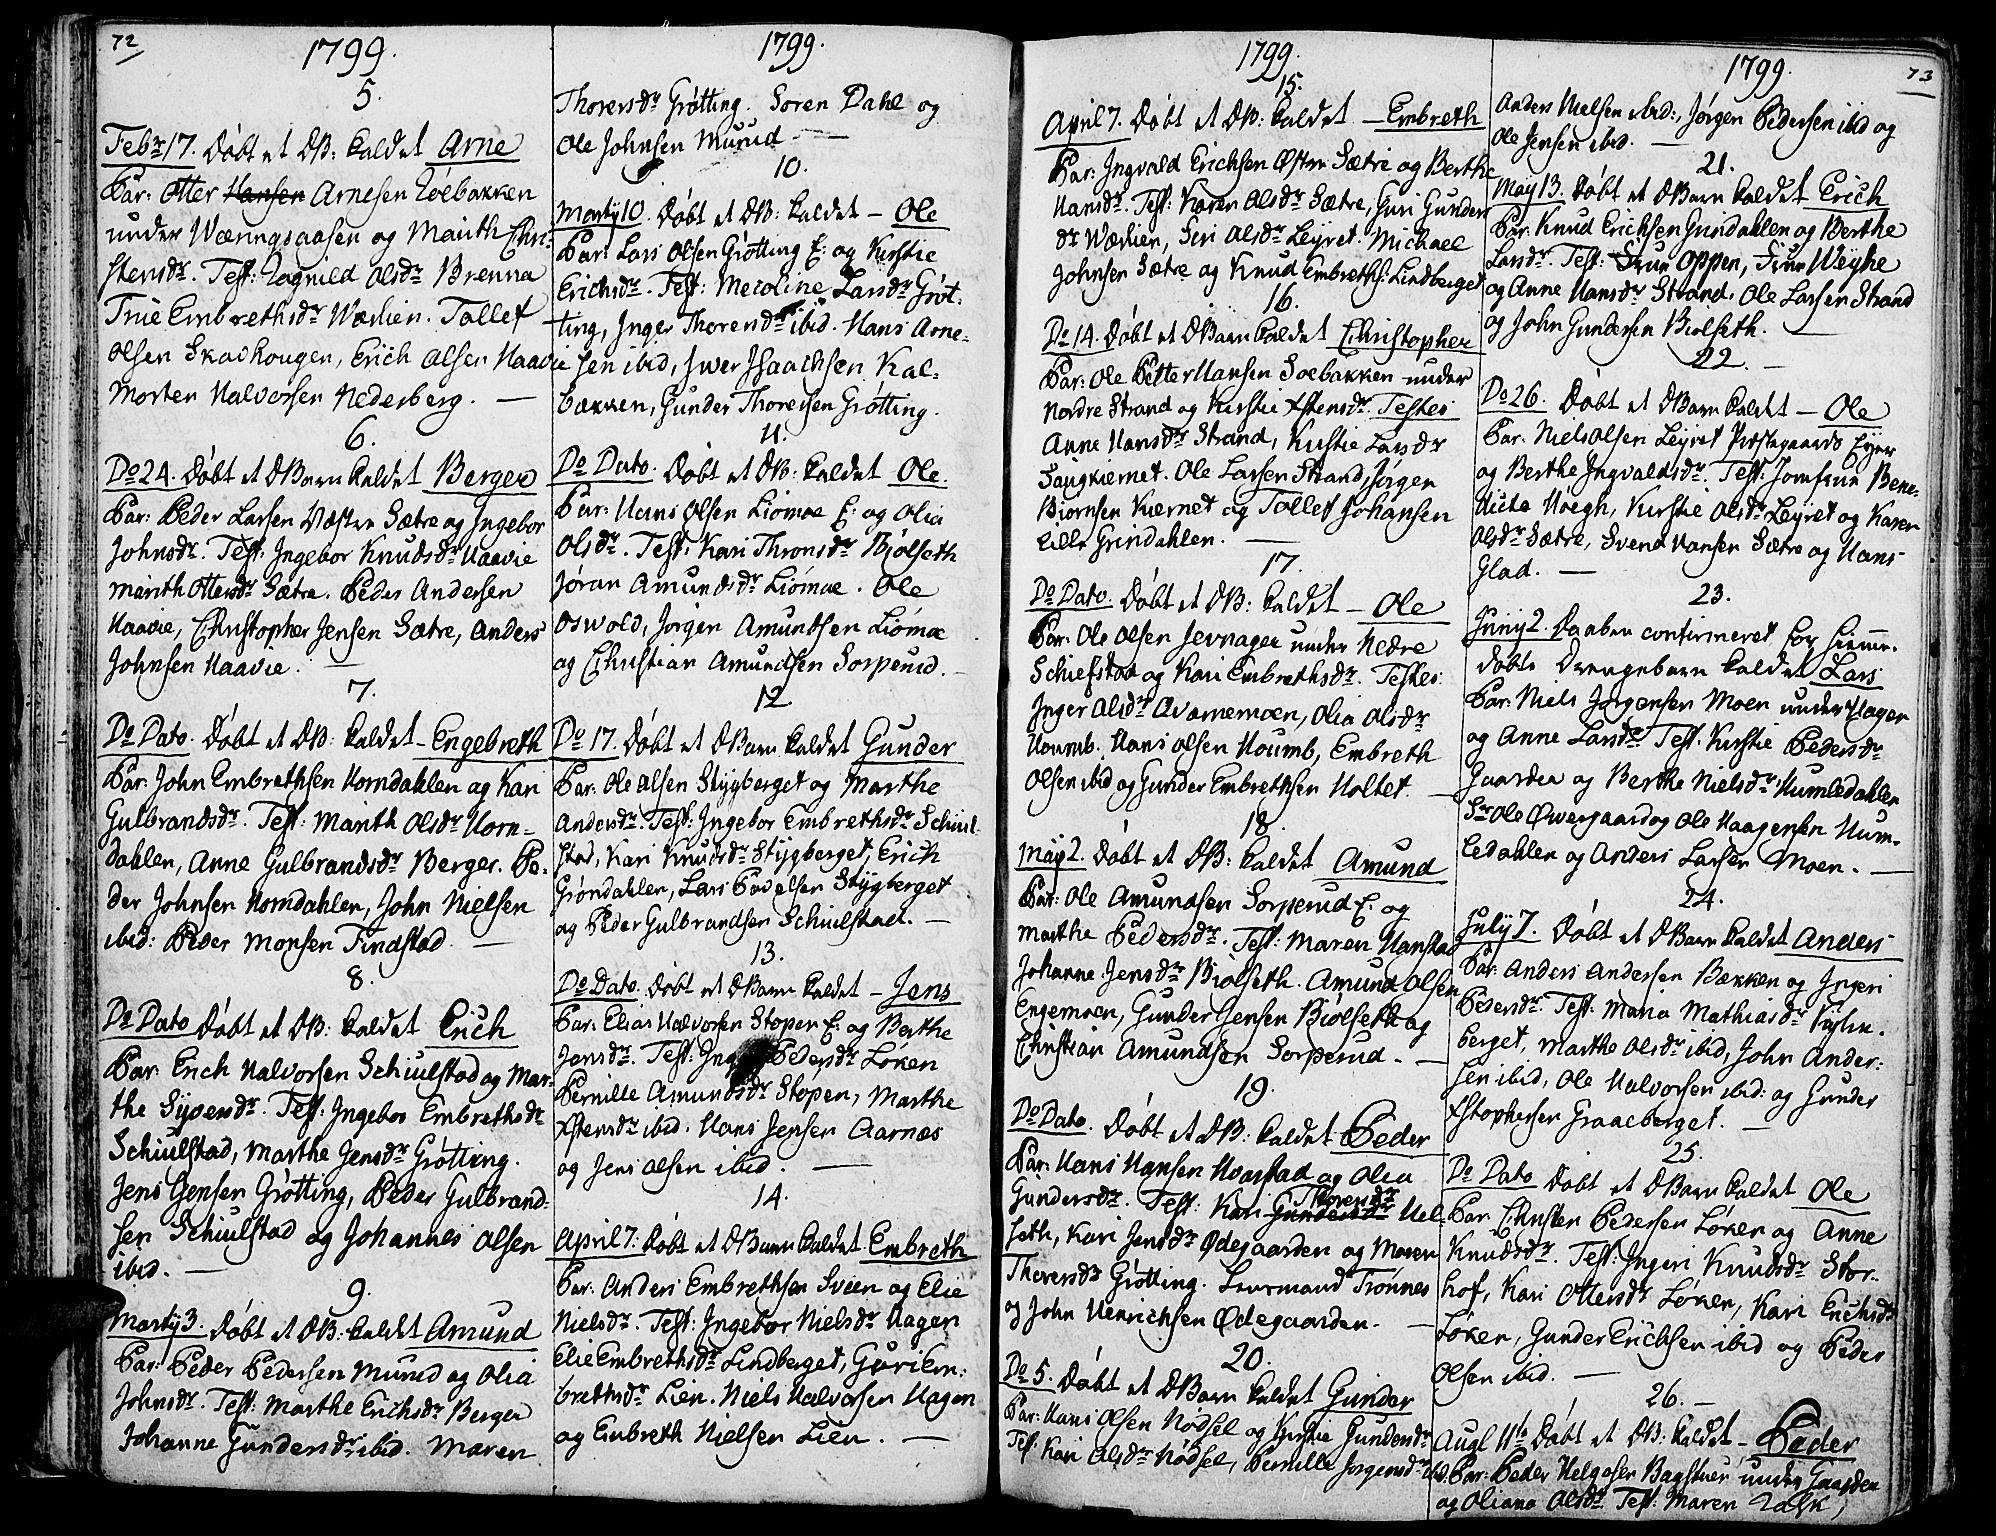 72
1799.
5.
Febr 17. Døbt et DB: kaldet Arne
Par: Otter Hansen Arnesen Roebakken
under Wæringsaasen og Marith Chri-
stensdr. Test: Ragnild Olsdr Brenna
Trie Embrethsdr Wædien. Tollef
Olsen Skadhougen, Erich Olsen Haavie
Morten Halvorsen Nederberg.
6.
Do 24. Døbt et DBarn kaldet Berger
Par: Peder Larsen Væster Sætre og Ingebor
Johnsdr. Test: Ingebor Knudsdr Haavie
Marith Ottersdr Sætre. Peder Andersen
Haavie, Christopher Jensen Sætre, Anders
Johnsen Haavie.
7.
Do Dato. Døbt et DB: kaldet Engebreth
Par: John Embrethsen Horndahlen og Kari
Gulbrandsdr. Test: Marith Olsdr Horn-
dahlen, Anne Gulbrandsdr Berger. Pe-
der Johnsen Horndahlen, John Nielsen
ibid: Peder Monsen Findstad
8.
Do Dato Døbt et DB: kaldet Erich
Par: Erich Halvorsen Schiulstad og Mar-
the Syversdr. Test: Ingebor Embrethsdr
Schiulstad, Marthe Jensdr Grøtting.
Jens Jensen Grøtting, Peder Gulbrand-
sen Schiulstad og Johannes Olsen
ibid.
9.
Martij 3. Døbt et DB: kaldet Amund
Par: Peder Pedersen Murud og Olia
Johnsdr. Test: Marthe Erichsdr Berger
Johanne Gundersdr ibid. Maren
1799.
Thoresdr Grøtting. Soren Dahl og
Ole Johnsen Murud
10.
Martij 10. Døbt et DB: kaldet - Ole
Par: Lars Olsen Grøtting E: og Kirstie
Erichsdr. Test: Meroline Larsdr Grøt-
ting, Inger Thorensdr ibid. Hans Arne-
sen ibid, Iwer Isaachsen Kal-
bækken, Gunder Thoresen Grøtting.
11.
Do Dato. Døbt et DB: kaldet Ole.
Par: Hans Olsen Liømoe E: og Olia
Olsdr. Test: Kari Thronsdr Biølseth
Jøran Amundsdr Liømoe. Ole
Oswold, Jørgen Amundsen Liømoe
og Christian Amundsen Sorperud.
12
Do 17. Døbt et DBarn kaldet Gunder
Par: Ole Olsen Stygberget og Marthe
Andersdr. Test: Ingebor Embrethsdr Schiul-
stad, Kari Knudsdr Stygberget, Erich
Grøndahlen, Lars Povelsen Stygberget
og Peder Gulbrandsen Schiulstad.
13.
Do Dato. Døbt et DBarn kaldet - Jens
Par: Elias Halvorsen Stopen E: og Berthe
Jensdr. Test: Pedersdr Løken
Pernille Amundsdr Stopen, Marthe
Xstensdr ibid. Hans Jensen Aarnæs
og Jens Olsen ibid.
14.
April 7: Døbt et DBarn kaldet Embreth
Par: Anders Embrethsen Sveen og Elie
Nielsdr. Test: Ingebor Nielsdr Hagen
Elie Embrethsdr Lindberget, Guri Em-
brethsdr Lien. Niels Halvorsen Hagen
og Embreth Nielsen Lien.
1799.
15.
April 7. Døbt et DB: kaldet - Embreth
Par: Ingvald Erichsen Øster Sætre og Berthe
Hansdr. Test: Karen Olsdr Sætre, Guri Gunders
dr Wædien, Siri Olsdr Leyret. Michael
Johnsen Sætre og Knud Embrethss: Lindberget
16.
Do 14. Døbt et DBarn kaldet Christopher
Par: Ole Petter Hansen Soebakken under
Nordre Strand og Kirstie Xstensdr. Testes
Anne Hansdr Strand, Kirstie Larsdr
Saugkiernet. Ole Larsen Strand, Jørgen
Biørnsen Kiernet og Tollef Johansen
Lille Grindahlen.
17.
Do Dato. Døbt et DB: kaldet - Ole
Par: Ole Olsen Jevnager under Nedre
Schiefstad og Kari Embrethsdr. Testes
Inger Olsdr Qvarnemoen, Olia Olsdr
Houmb. Hans Olsen Houmb, Embreth
Olsen ibid og Gunder Embrethsen Holtet.
18.
May 2. Døbt et DB: kaldet Amund
Par: Ole Amundsen Sorperud E: og
Marthe Pedersdr. Test: Maren Hanstad
Johanne Jensdr Biølseth. Amund Olsen
Engemoen, Gunder Jensen Biølseth og
Christian Amundsen Sorperud.
19.
Do Dato. Døbt et DB: kaldet Peder
Par: Hans Hansen Hvarstad og Olia
Gundersdr. Test: Kari Gundersdr Thoresdr Hel-
seth, Kari Jensdr Ødegaarden og Maren
Thoresdr Grøtting. Lensmand Trønnes
og John Henrichsen Ødegaarden.
20.
Do 5. Døbt et DBarn kaldet Gunder
Par: Hans Olsen Nødsel og Kirstie Gundersdr
Test: Kari Olsdr Nødsel, Pernille Jorgensdr ibid.
1799.
73
Anders Nielsen ibid:, Jørgen Pedersen ibid og
Ole Jensen ibid.
21.
May 13. Døbt et DBarn kaldet Erich
Par: Knud Erichsen Gundahlen og Berthe
Larsdr. Test: Frue Oppen, Frue Weyhe
og Anne Hansdr Strand. Ole Larsen Strand
og John Gundersen Biølseth.
22.
Do 26. Døbt et DBarn kaldet - Ole
Par: Niels Olsen Leyret Præstegaards Eyer
og Berthe Ingvaldsdr. Test: Jomfrue Bene-
dicta Høegh, Kirstie Olsdr Leyret og Karen
Olsdr Sætre, Svend Hansen Sætre og Hans
Glad.
23.
Juny 2. Daaben confirmeret for hiemme-
døbte Drengebarn kaldet Lars
Par: Niels Jørgensen Moen under Hagen
og Anne Larsdr Test: Kirstie Pedersdr
Gaarden og Berthe Nielsdr Humledahlen
Sr Ole Øwergaard og Ole Haagensen Hum-
ledahlen og Anders Larsen Moen.
24.
July 7. Døbt et DBarn kaldet Anders
Par: Anders Andersen Bækken og Ingeri
Pedersdr. Test: Maria Mathiasdr
berget, Marthe Olsdr ibid, John Ander-
sen ibid, Ole Halvorsen ibid: og Gunder
Xstophersen Graaberget.
25.
Do Dato Døbt et DBarn kaldet Ole
Par: Christen Pedersen Løken og Anne
Knudsdr. Test: Ingeri Knudsdr Stor-
hof, Kari Ottersdr Løken, Kari Erichsdr
Løken, Gunder Erichsen ibid og Peder
Olsen ibid.
26.
Aug 11te Døbt et DB: kaldet - Peder
Par: Peder Helgesen Bagstuen under Gaarden
og Oliana Olsdr. Test: Maren